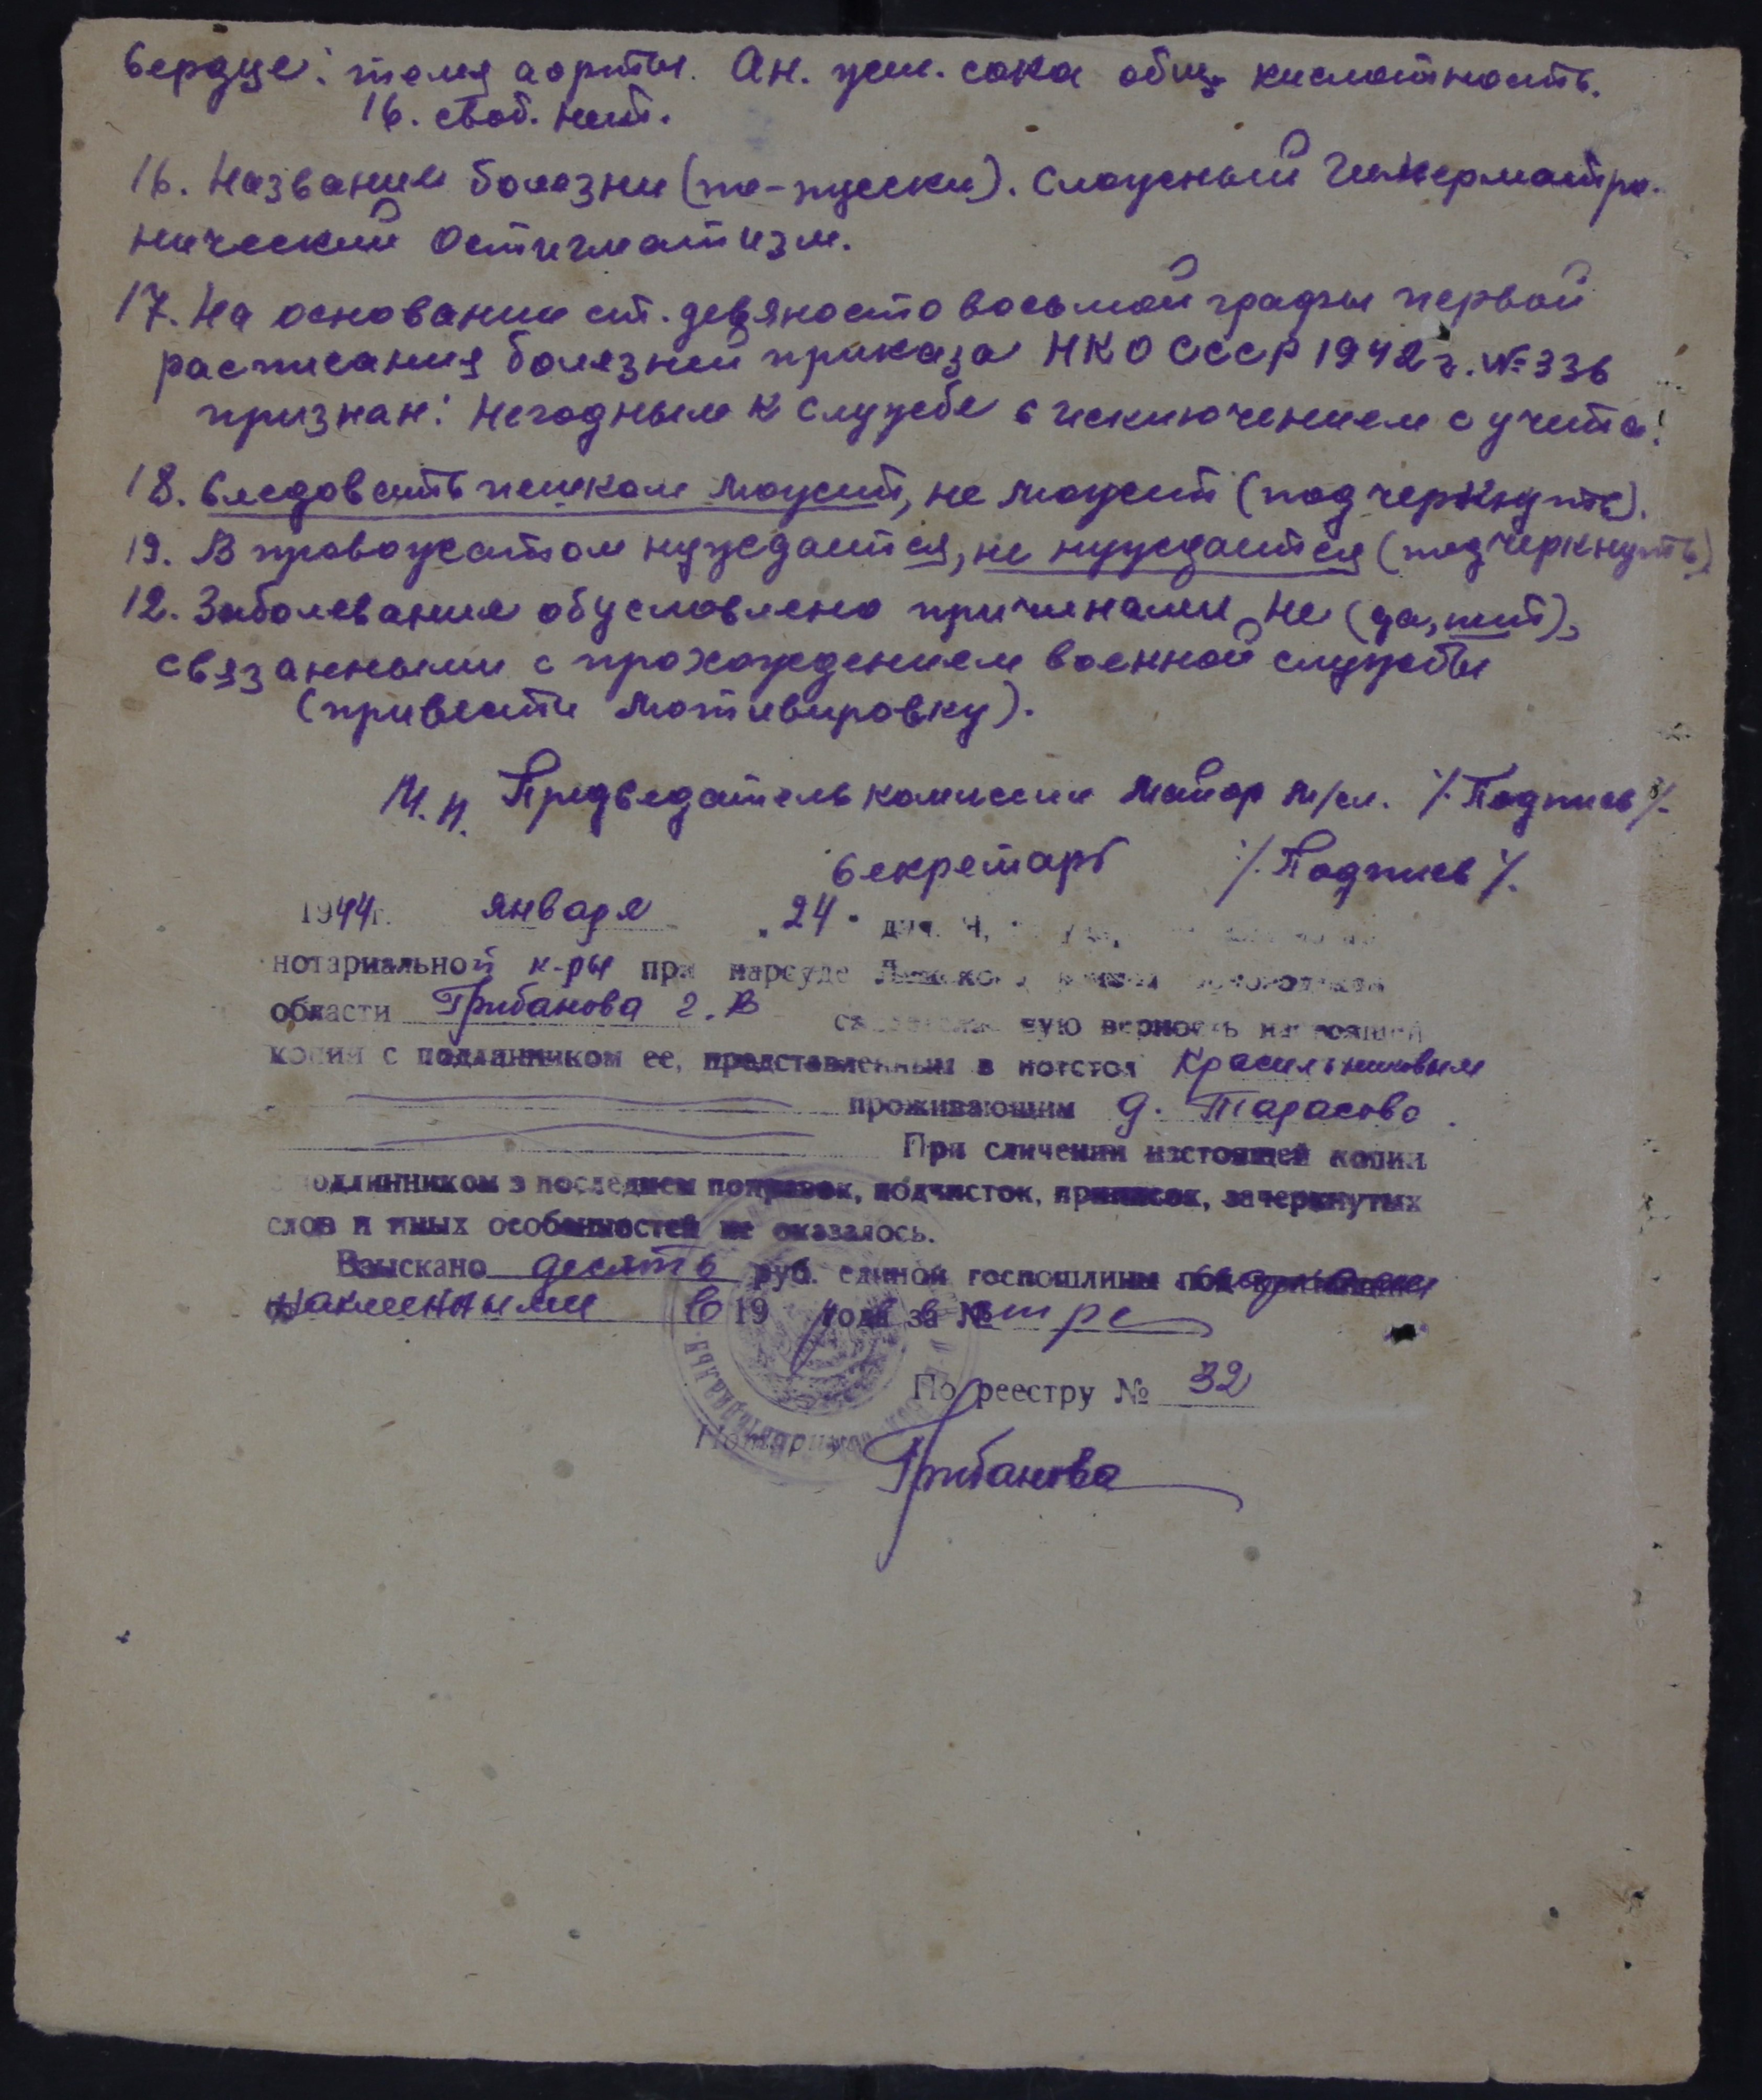 Сердце: тоны аорты. Ан. жел. сока общ. кислотность.
16. своб. нет.
16. Название болезни (по-русски). Сложный Гиперметро-
пический Остигматизм.
17. На основании ст. девяносто восьмой графы первой
расписания болезней приказа НКО СССР 1942 г. №336
признан: Негодным к службе с исключением с учета.
18. Следовать пешком может, не может (подчеркнуть).
19. В провожатом нуждается, не нуждается (подчеркнуть)
12. Заболевание обусловлено причинами не (да, нет),
связанными с прохождением военной службы
(привести мотивировку).
М.П. Председатель комиссии майор м/сл. /Подпись/.
Секретарь /Подпись/.
1944 г. января "24" дня. Я,
нотариальной к-ры при нарсуде
области Грибанова Г. В верность настоящей
копии с подлинником ее, представленным в нотстол Красильниковым
проживающим д. Тарасово
При сличении настоящей копии
с подлинником в последнем поправок, подчисток, приписок, зачеркнутых
слов и иных особенностей не оказалось.
Взыскано десять руб. единой госпошлины
наклеенными 19 года за №
По реестру № 32
Нотариус Грибанова